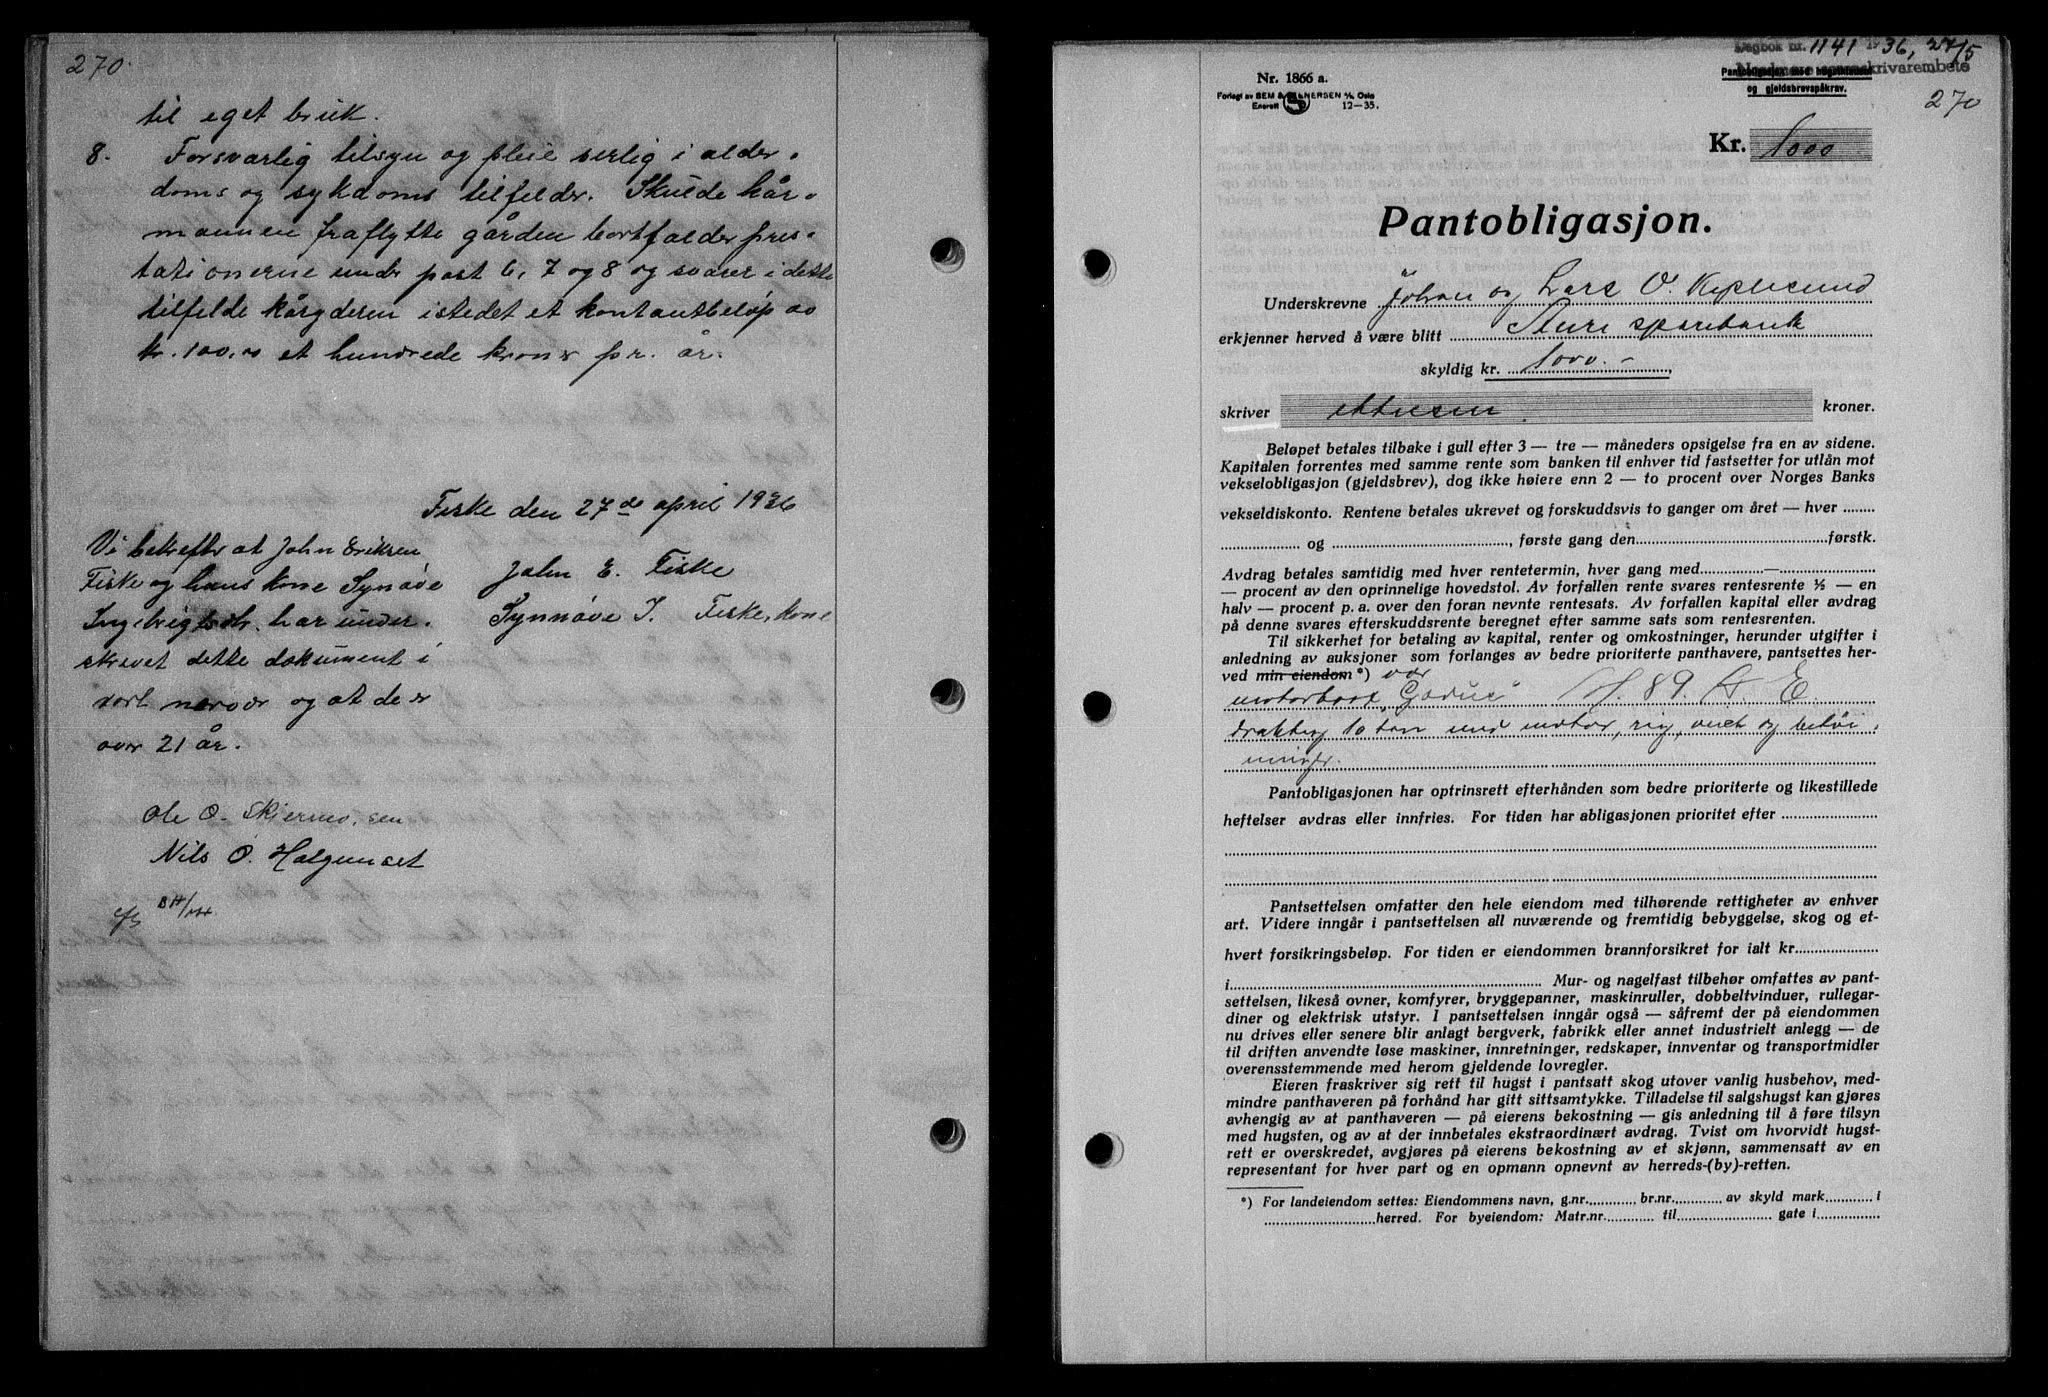 270.
til eget bruk.
8. Forsvarlig tilsyn og pleie serlig i alder-
doms og sykdoms tilfelder. Skulde kår-
mannen fraflytte gården bortfalder pres-
tationerne under post 6, 7 og 8 og svarer i dette
tilfelde kårgderen istedet et kontantbeløp av
kr. 100,00 et hundrede kroner pr. år.
Fiske den 27de april 1936
John E. Fiske
Synnøve I. Fiske, kone
Vi bekrefter at John Eriksen
Fiske og hans kone Synøve
Ingebrigtsdtr. har under-
skrevet dette dokument i
vort nærvær og at de er
over 21 år.
Ole O. Skjermo, sen
Nils O. Halgunset
Dagbok nr. 1141 1936, 27/5
Nordmøre sorenskrivarembete
Pantobligasjon med hugstklausul
og gjeldsbrevspåkrav.
Nr. 1866 a.
Forlagt av SEM & STENERSEN A/S, Oslo
Enerett 12-35.
270
Kr. 1000
Pantobligasjon.
Underskrevne Johan og Lars O.
erkjenner herved å være blitt Aure sparebank
skyldig kr. 1000.-
skriver ettusen kroner.
Beløpet betales tilbake i gull efter 3 — tre — måneders opsigelse fra en av sidene.
Kapitalen forrentes med samme rente som banken til enhver tid fastsetter for utlån mot
vekselobligasjon (gjeldsbrev), dog ikke høiere enn 2 — to procent over Norges Banks
vekseldiskonto. Rentene betales ukrevet og forskuddsvis to ganger om året — hver
og , første gang den førstk.
Avdrag betales samtidig med hver rentetermin, hver gang med —
— procent av den oprinnelige hovedstol. Av forfallen rente svares rentesrente ½ — en
halv — procent p. a. over den foran nevnte rentesats. Av forfallen kapital eller avdrag
på denne svares efterskuddsrente beregnet efter samme sats som rentesrenten.
Til sikkerhet for betaling av kapital, renter og omkostninger, herunder utgifter i
anledning av auksjoner som forlanges av bedre prioriterte panthavere, pantsettes her-
ved min eiendom *) vår
motorbaat "Gadus" M. 89. A. E.
drektig 10 ton med motor, rig, anch og behør-
ninger.
Pantobligasjonen har optrinsrett efterhånden som bedre prioriterte og likestillede
heftelser avdras eller innfries. For tiden har abligasjonen prioritet efter
Pantsettelsen omfatter den hele eiendom med tilhørende rettigheter av enhver
art. Videre inngår i pantsettelsen all nuværende og fremtidig bebyggelse, skog og et-
hvert forsikringsbeløp. For tiden er eiendommen brannforsikret for ialt kr.
i. Mur- og nagelfast tilbehør omfattes av pant-
settelsen, likeså ovner, komfyrer, bryggepanner, maskinruller, dobbeltvinduer, rullegar-
diner og elektrisk utstyr. I pantsettelsen inngår også — såfremt der på eiendommen
nu drives eller senere blir anlagt bergverk, fabrikk eller annet industrielt anlegg — de
til driften anvendte løse maskiner, innretninger, redskaper, innventar og transportmidler
overensstemmende med herom gjeldende lovregler.
Eieren fraskriver sig rett til hugst i pantsatt skog utover vanlig husbehov, med-
mindre panthaveren på forhånd har gitt sittsamtykke. Tilladelse til salgshugst kan gjøres
avhengig av at panthaveren — på eierens bekostning — gis anledning til å føre tilsyn
med hugsten, og av at der innbetales ekstraordinært avdrag. Tvist om hvorvidt hugst-
rett er overskredet, avgjøres på eierens bekostning av et skjønn, sammensatt av en
representant for hver part og en opmann opnevnt av herreds-(by)-retten.
*) For landeiendom settes: Eiendommens navn, g.nr. br.nr. av skyld mark i
herred. For byeiendom: Matr.nr. til gate i